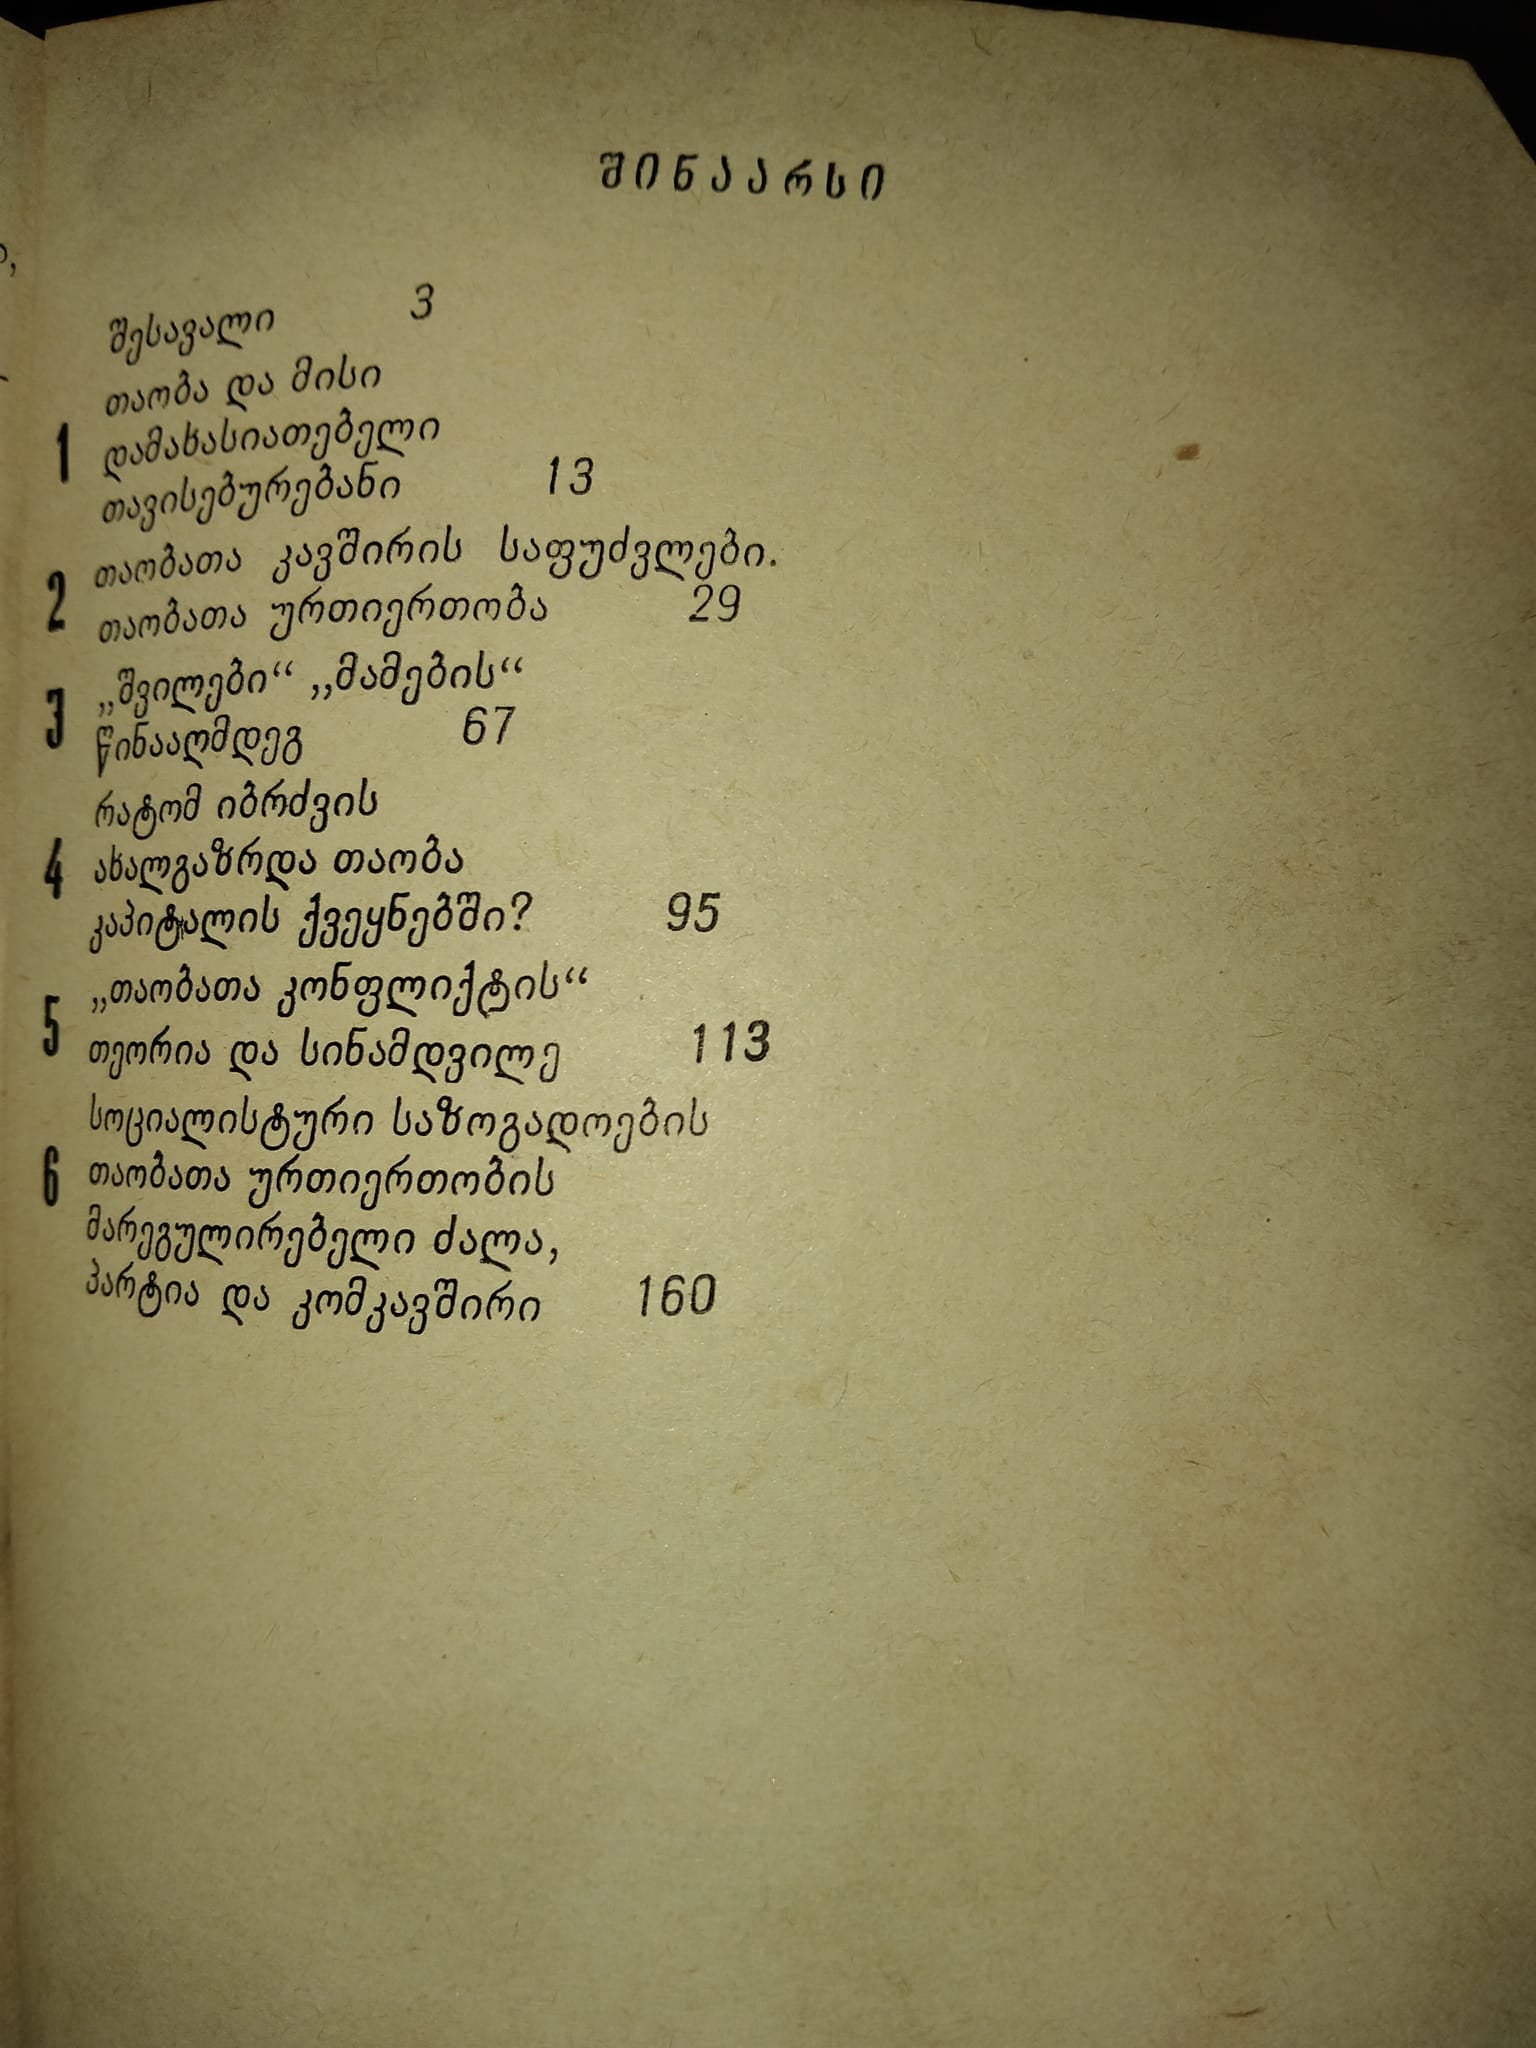 შინაარსი
შესავალი 3
თაობა და მისი
1 დამახასიათებელი
თავისებურებანი 13
თაობათა კავშირის საფუძვლები.
2 თაობათა ურთიერთობა 29
„შვილები“ „მამების“
3 წინააღმდეგ 67
რატომ იბრძვის
4 ახალგაზრდა თაობა
კაპიტალის ქვეყნებში? 95
„თაობათა კონფლიქტის“
5 თეორია და სინამდვილე 113
სოციალისტური საზოგადოების
6 თაობათა ურთიერთობის
მარეგულირებელი ძალა,
პარტია და კომკავშირი 160